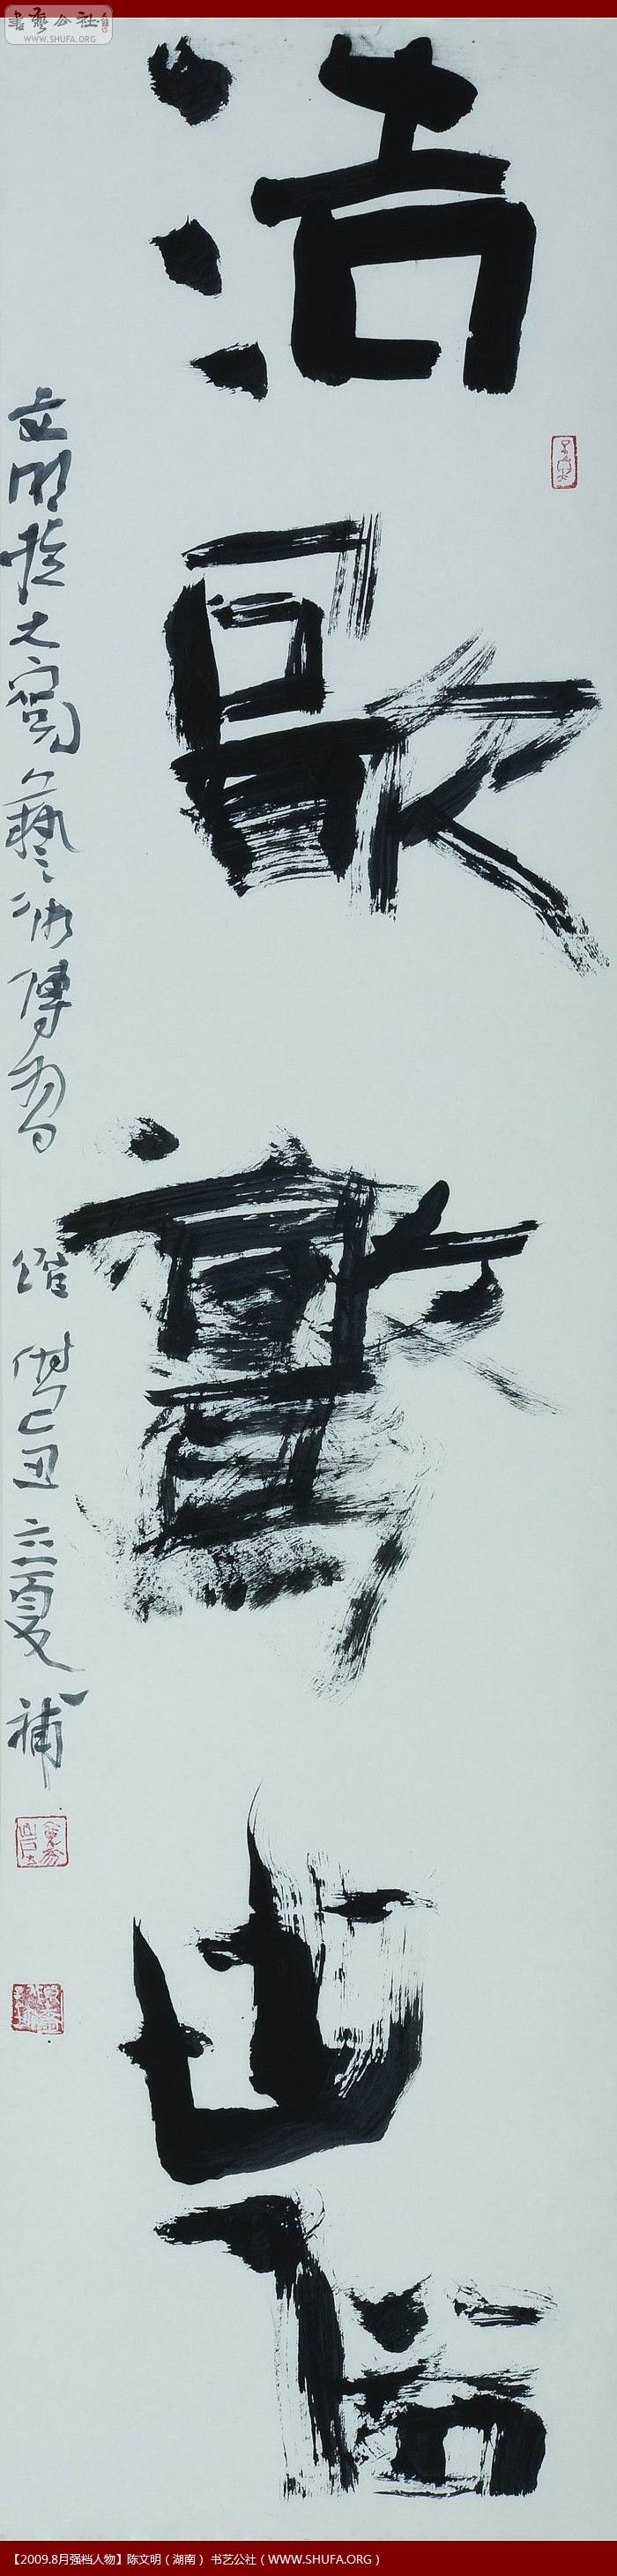 書藝公社
WWW.SHUFA.ORG
浩歌驚世俗
文明於大寫藝術傳習館時己丑立夏補
【2009.8月强档人物】陈文明（湖南） 书艺公社（WWW.SHUFA.ORG）